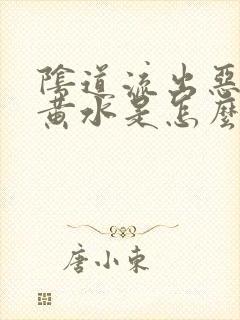 陰道流出惡
黃水是怎麼
唐小東